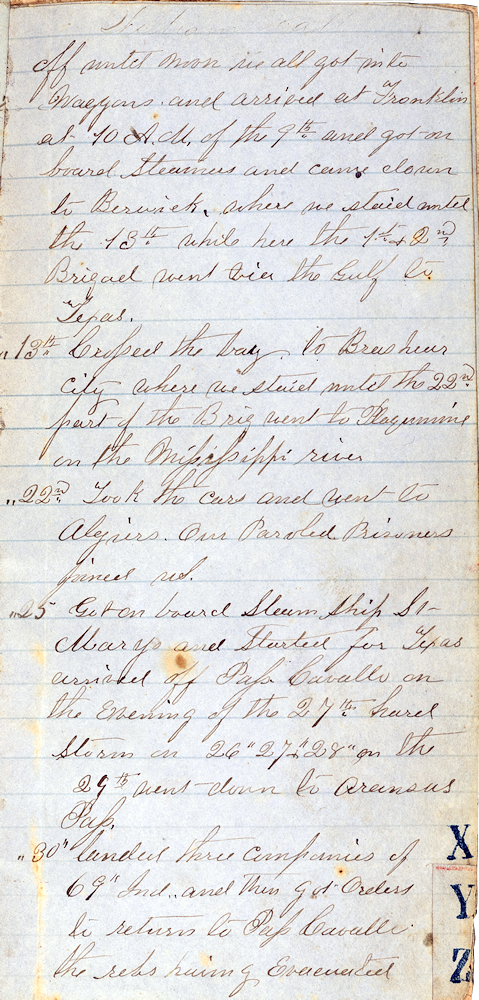 off until noon we all got into
Waggons and arrived at Franklin
at 10 A.M. of the 9th and got on
board Steamers and came down
to Berwick, where we staid until
the 13th while here the 1st & 2nd
Brigad went via the Gulf to
Texas.
"13th Crossed the bay to Brashear
city where we staid until the 22nd
part of the Brig went to Plaqumine
on the Mississippi river
"22nd Took the cars and went to
Algiers. Our Paroled Prisoners
joined us.
"25 Got on board Steam Ship St
Marys and Started for Texas
arrived off Pass Cavallo on
the Evening of the 27th hard
Storm on 26" 27" & 28" on the
29th went down to Aransas
Pass.
"30" landed three companies of
69" Ind. and then got Orders
to return to Pass Cavallo
the rebs having Evacuated
X
Y
Z